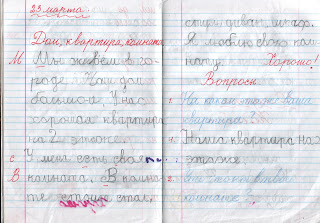 23 марта.
Дом, квартира, комната.
М Мы живём в го-
роде. Наш дом
большой. У нас
хорошая квартира
на 2 этаже.
С. У меня есть своя
В. комната. В комна-
те стол,
диван, шкаф.
Я люблю свою ком-
нату. Хорошо!
Вопросы
1. На каком этаже ваша
квартира?
1. Наша квартира на
этаже.
2.
комнате